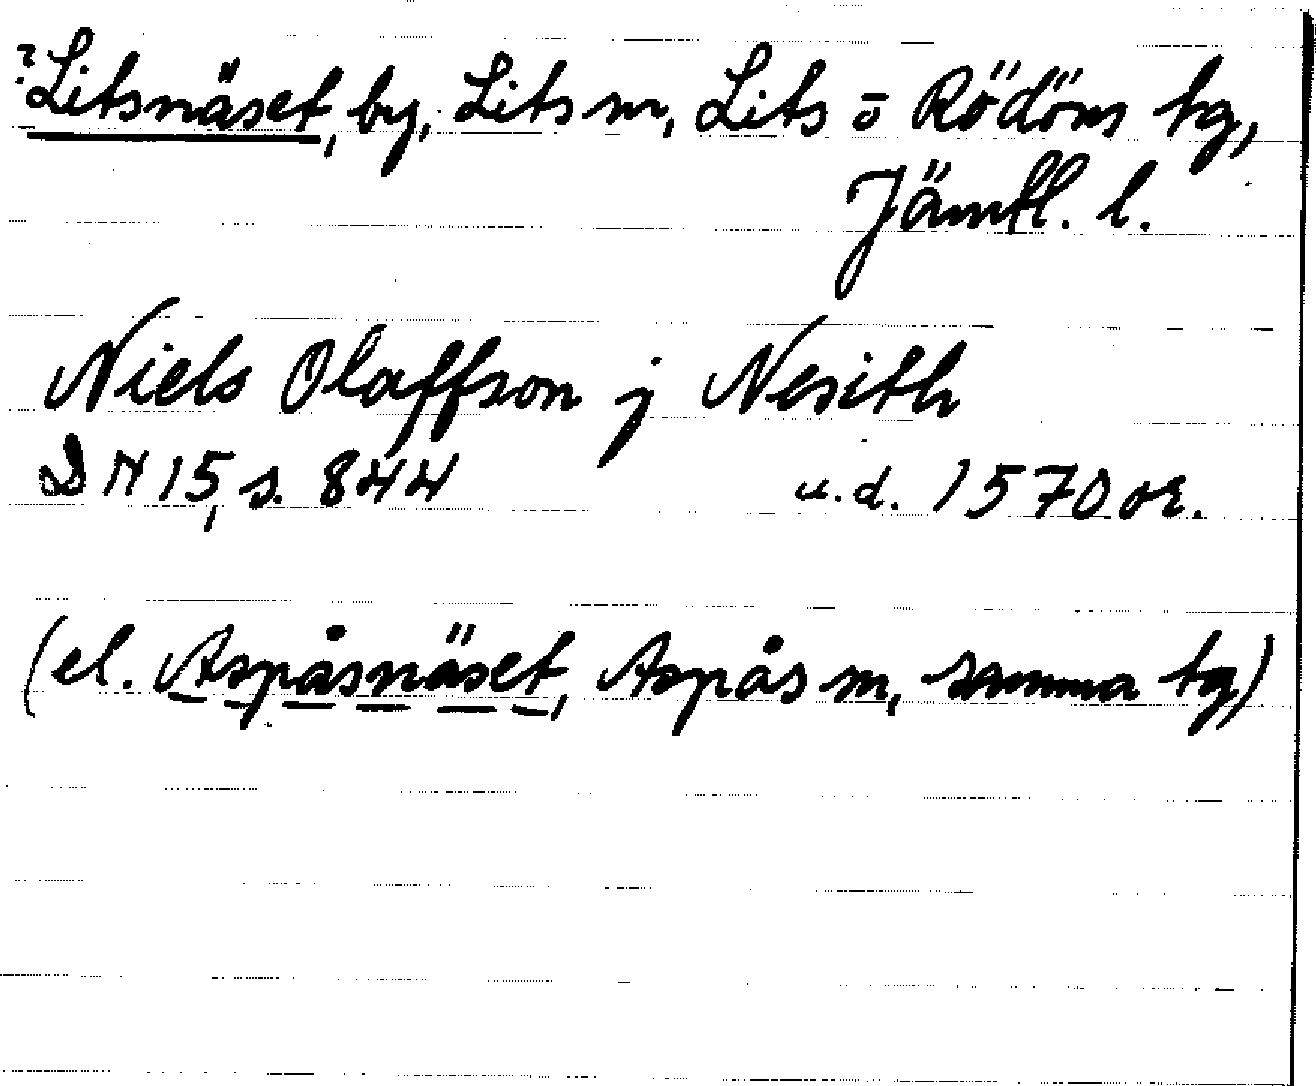 ? Litsnäset, by, Lits sn, Lits o Rödöns tg,
Jämtl. l.
Niels Olaffson j Nesith
DN 15, s. 844 u.d. 1570 or.
(el. Aspåsnäset, Aspås sn, samma tg)